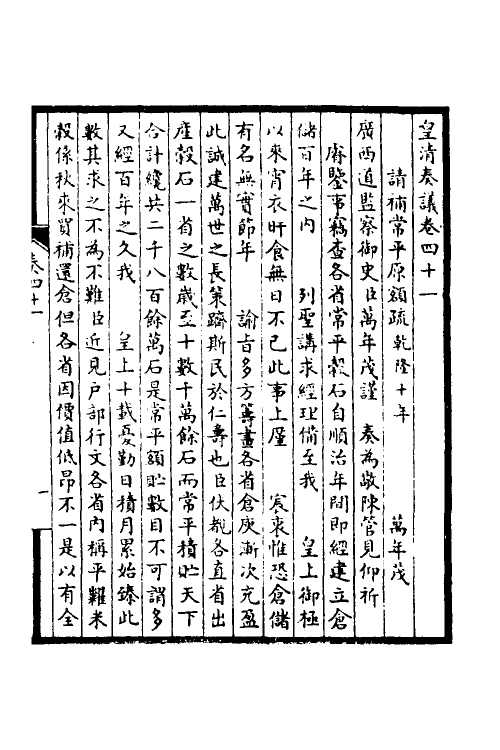 皇清奏議卷四十一
請補常平原額疏乾隆十年 萬年茂
廣西道監察御史臣萬年茂謹 奏為敬陳管見仰祈
睿鑒事竊查各省常平穀石自順治年間即經建立倉
儲百年之內 列聖講求經理備至我 皇上御極
以來宵衣旰食無日不已此事上廑 宸衷惟恐倉儲
有名無實節年 諭旨多方籌畫各省倉庾漸次充盈
此誠建萬世之長策躋斯民於仁壽也臣伏覩各直省出
產穀石一省之數歲至十數千萬餘石而常平積貯天下
合計纔共二千八百餘萬石是常平額貯數目不可謂多
又經百年之久我 皇上十載憂勤日積月累始臻此
數其求之不為不難臣近見户部行文各省內稱平糶米
穀係秋來買補還倉但各省因價值低昂不一是以有全
卷四十一
一